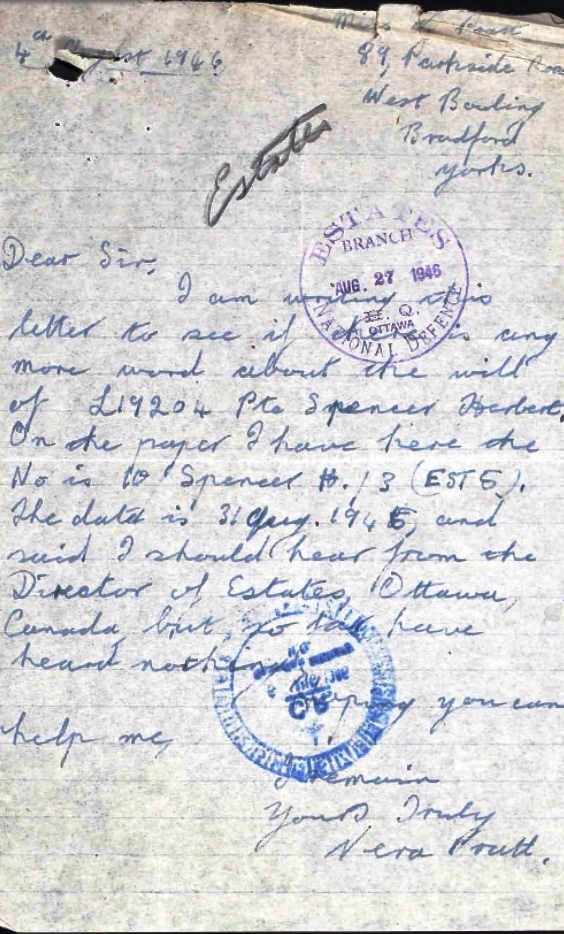 4th August 1946
Miss V Pratt
89, Parkside Road
West Bowling
Bradford
Yorks.
Estates
ESTATES
BRANCH
AUG. 27 1946
H. Q.
OTTAWA
NATIONAL DEFENCE
Dear Sir,
I am writing this
letter to see if there is any
more word about the will
of L19204 Pte Spencer Herbert.
On the paper I have here the
No is 10 Spencer H. / 3 (EST 5).
The date is 31 Aug. 1945, and
said I should hear from the
Director of Estates, Ottawa,
Canada, but so far have
heard nothing.
Hoping you can
help me,
I remain
Yours Truly
Vera Pratt.